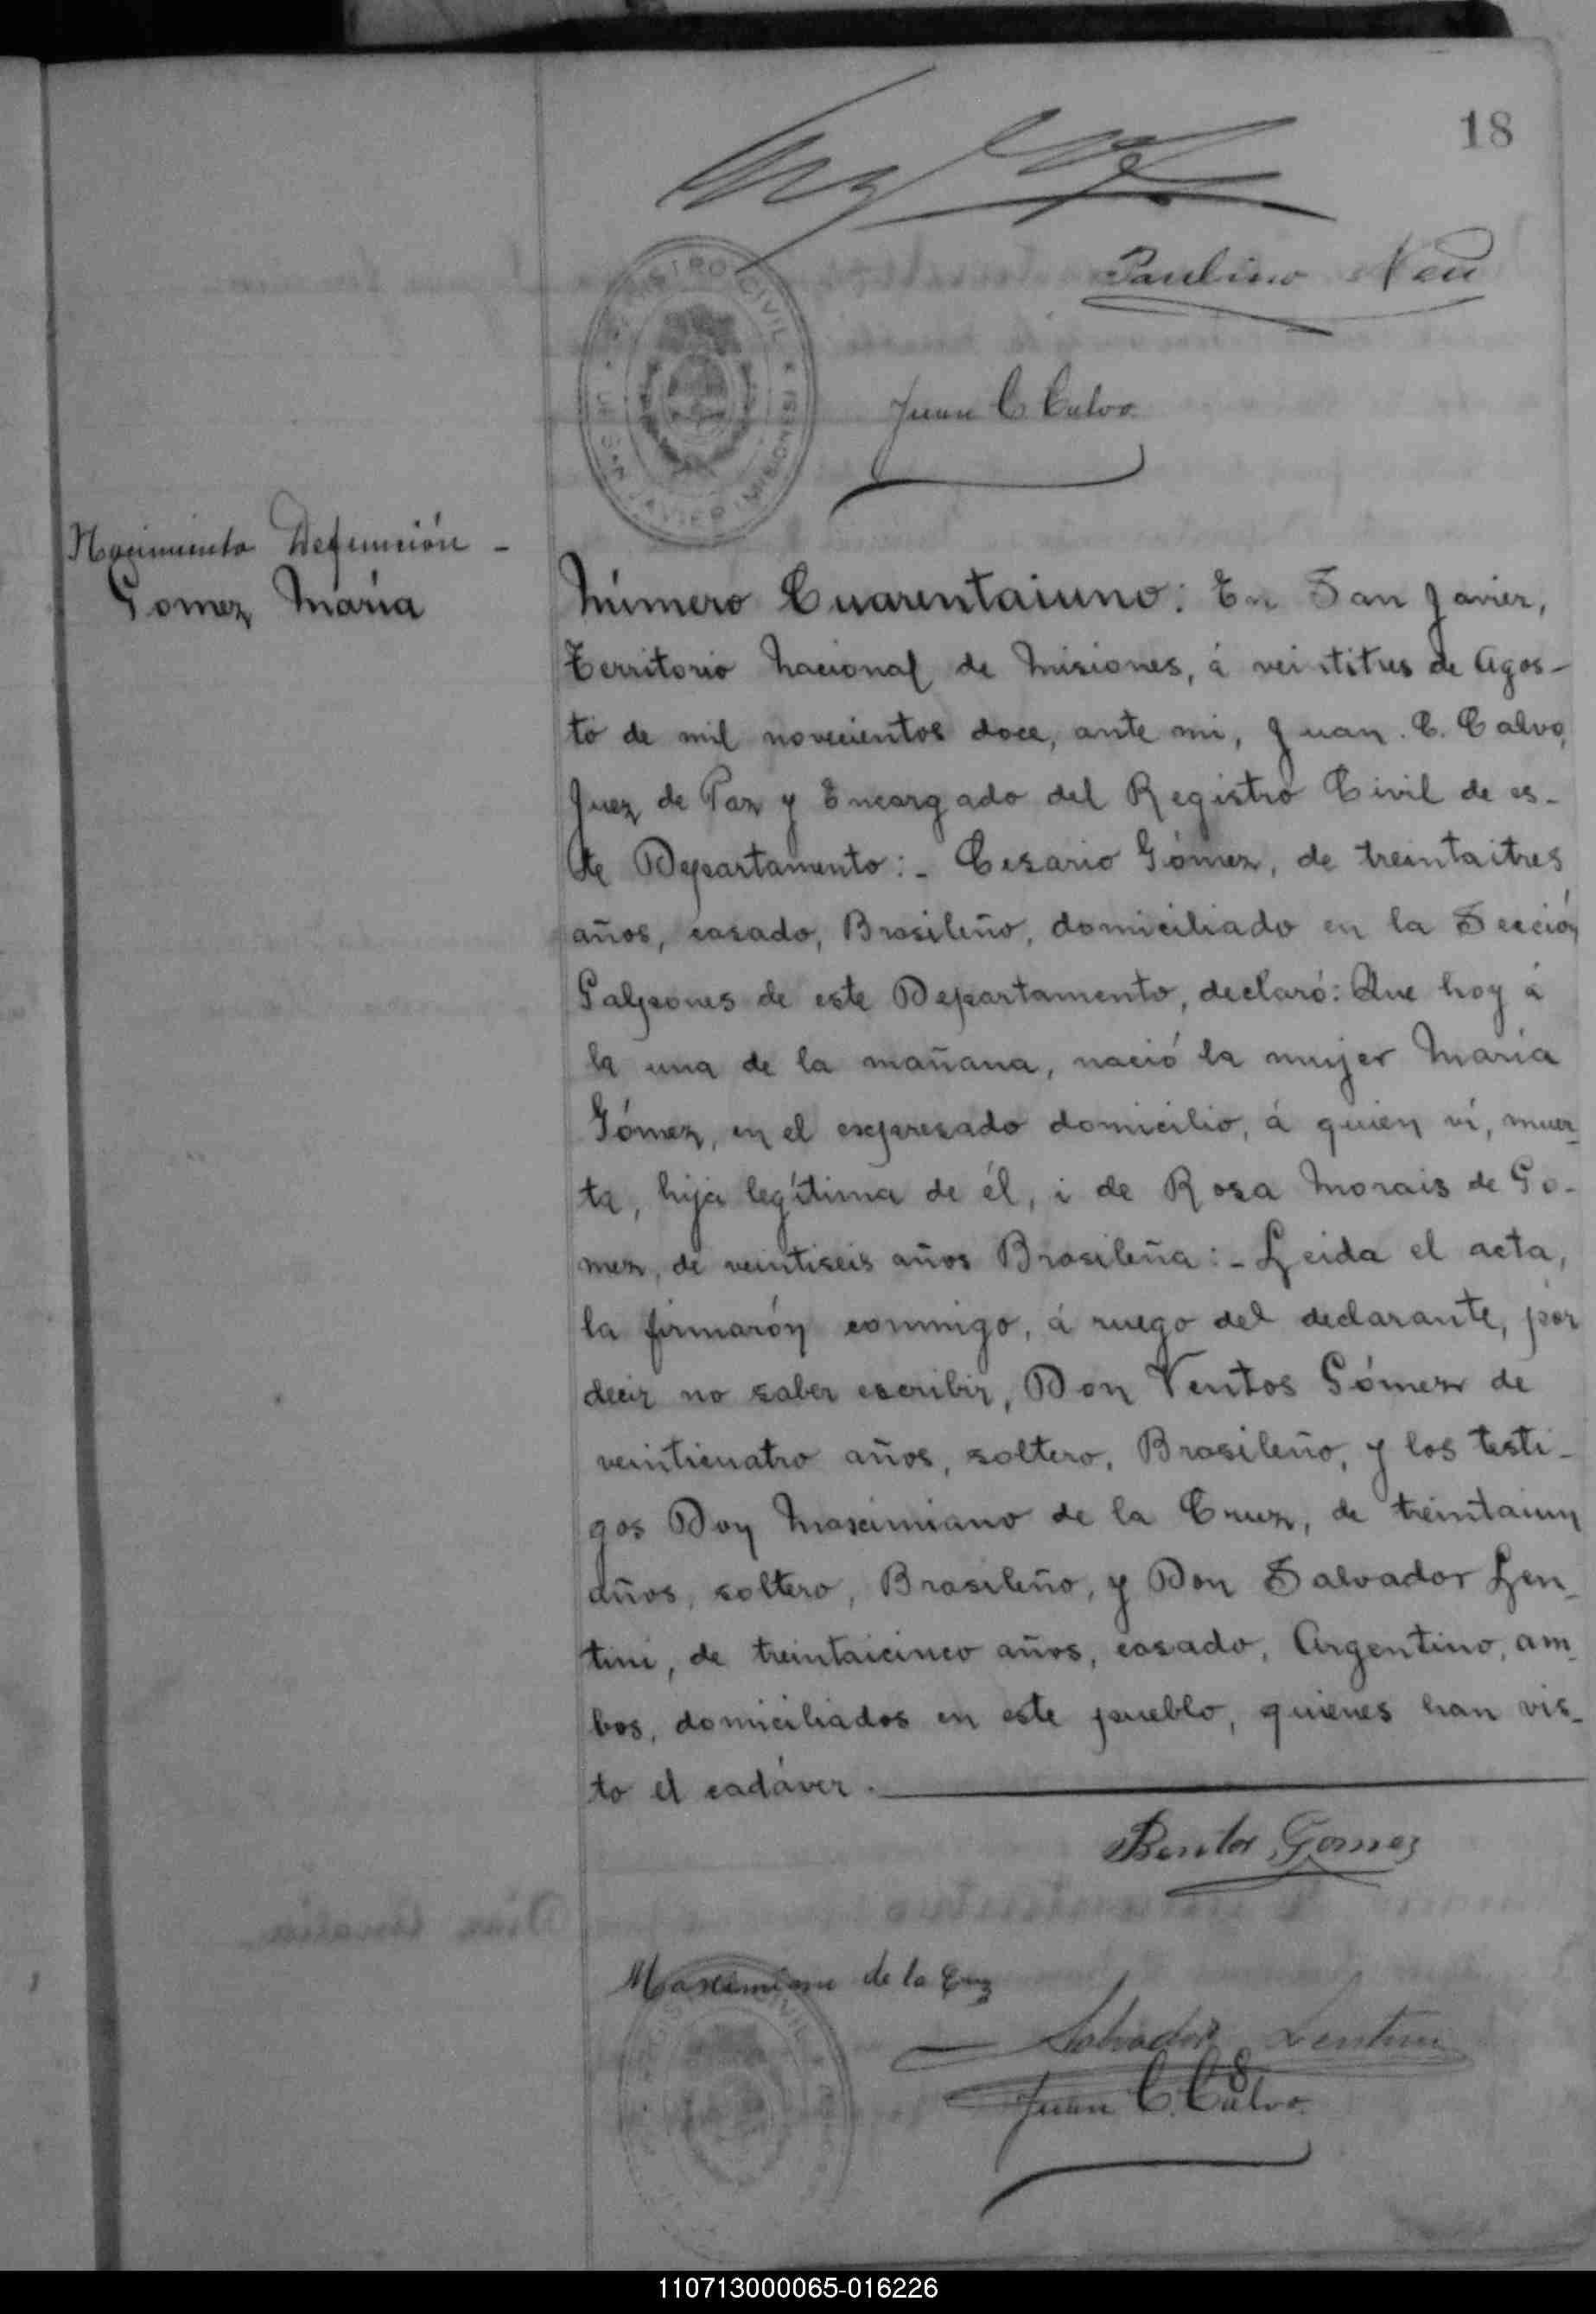 18
Paulino Neu
REGISTRO CIVIL
DE SAN JAVIER (MISIONES)
Juan C Calvo
Nacimiento Defunción -
Gomez María
Número Cuarentaiuno: En San Javier,
Territorio Nacional de Misiones, á veintitres de Agos-
to de mil novecientos doce, ante mi, Juan. C. Calvo,
Juez de Paz y Encargado del Registro Civil de es-
te Departamento:- Cesario Gómez, de treintaitres
años, casado, Brasileño, domiciliado en la Sección
Galpones de este Departamento, declaró: Que hoy á
la una de la mañana, nació la mujer María
Gómez, en el expresado domicilio, á quien ví, muer-
ta, hija legítima de él, i de Rosa Morais de Go-
mez, de veintiseis años Brasileña:- Leida el acta,
la firmarón conmigo, á ruego del declarante, por
decir no saber escribir, Don Ventos Gómez de
veinticuatro años, soltero, Brasileño, y los testi-
gos Don Maximiano de la Cruz, de treintaiun
años, soltero, Brasileño, y Don Salvador Len-
tini, de treintaicinco años, casado, Argentino, am-
bos, domiciliados en este pueblo, quienes han vis-
to el cadáver.
Bentos Gomez
Maximiano de la Cruz
Salvador Lentini
Juan C. Calvo
110713000065-016226